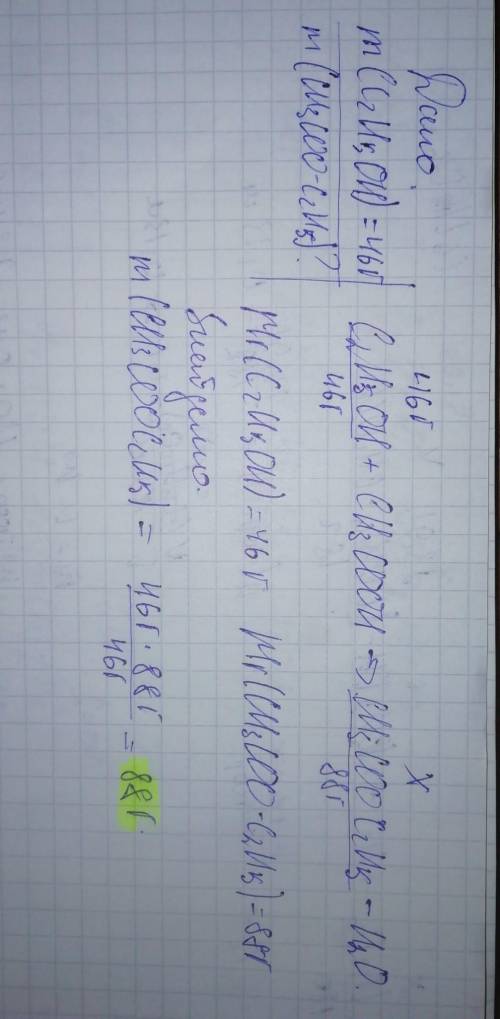 Дано
m(C₂H₅OH) = 46г
m(CH₃COO-C₂H₅)?
46г X
C₂H₅OH + CH₃COOH → CH₃COOC₂H₅ - H₂O.
46г 88г
Mr(C₂H₅OH) = 46г Mr(CH₃COO-C₂H₅) = 88г
m(CH₃COOC₂H₅) = 46г · 88г / 46г = 88г.